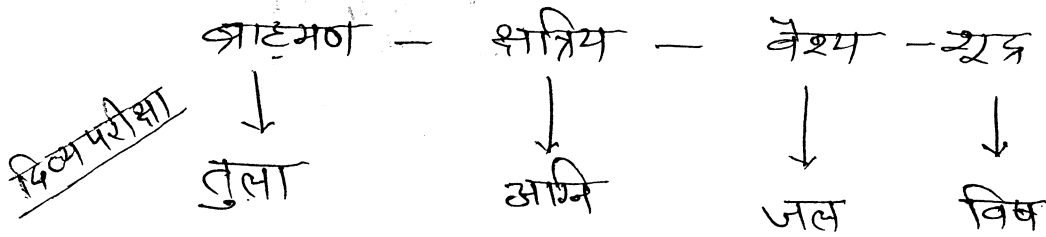 ब्राह्मण – क्षत्रिय – वैश्य – शूद्र
दिव्य परीक्षा
तुला अग्नि जल विष